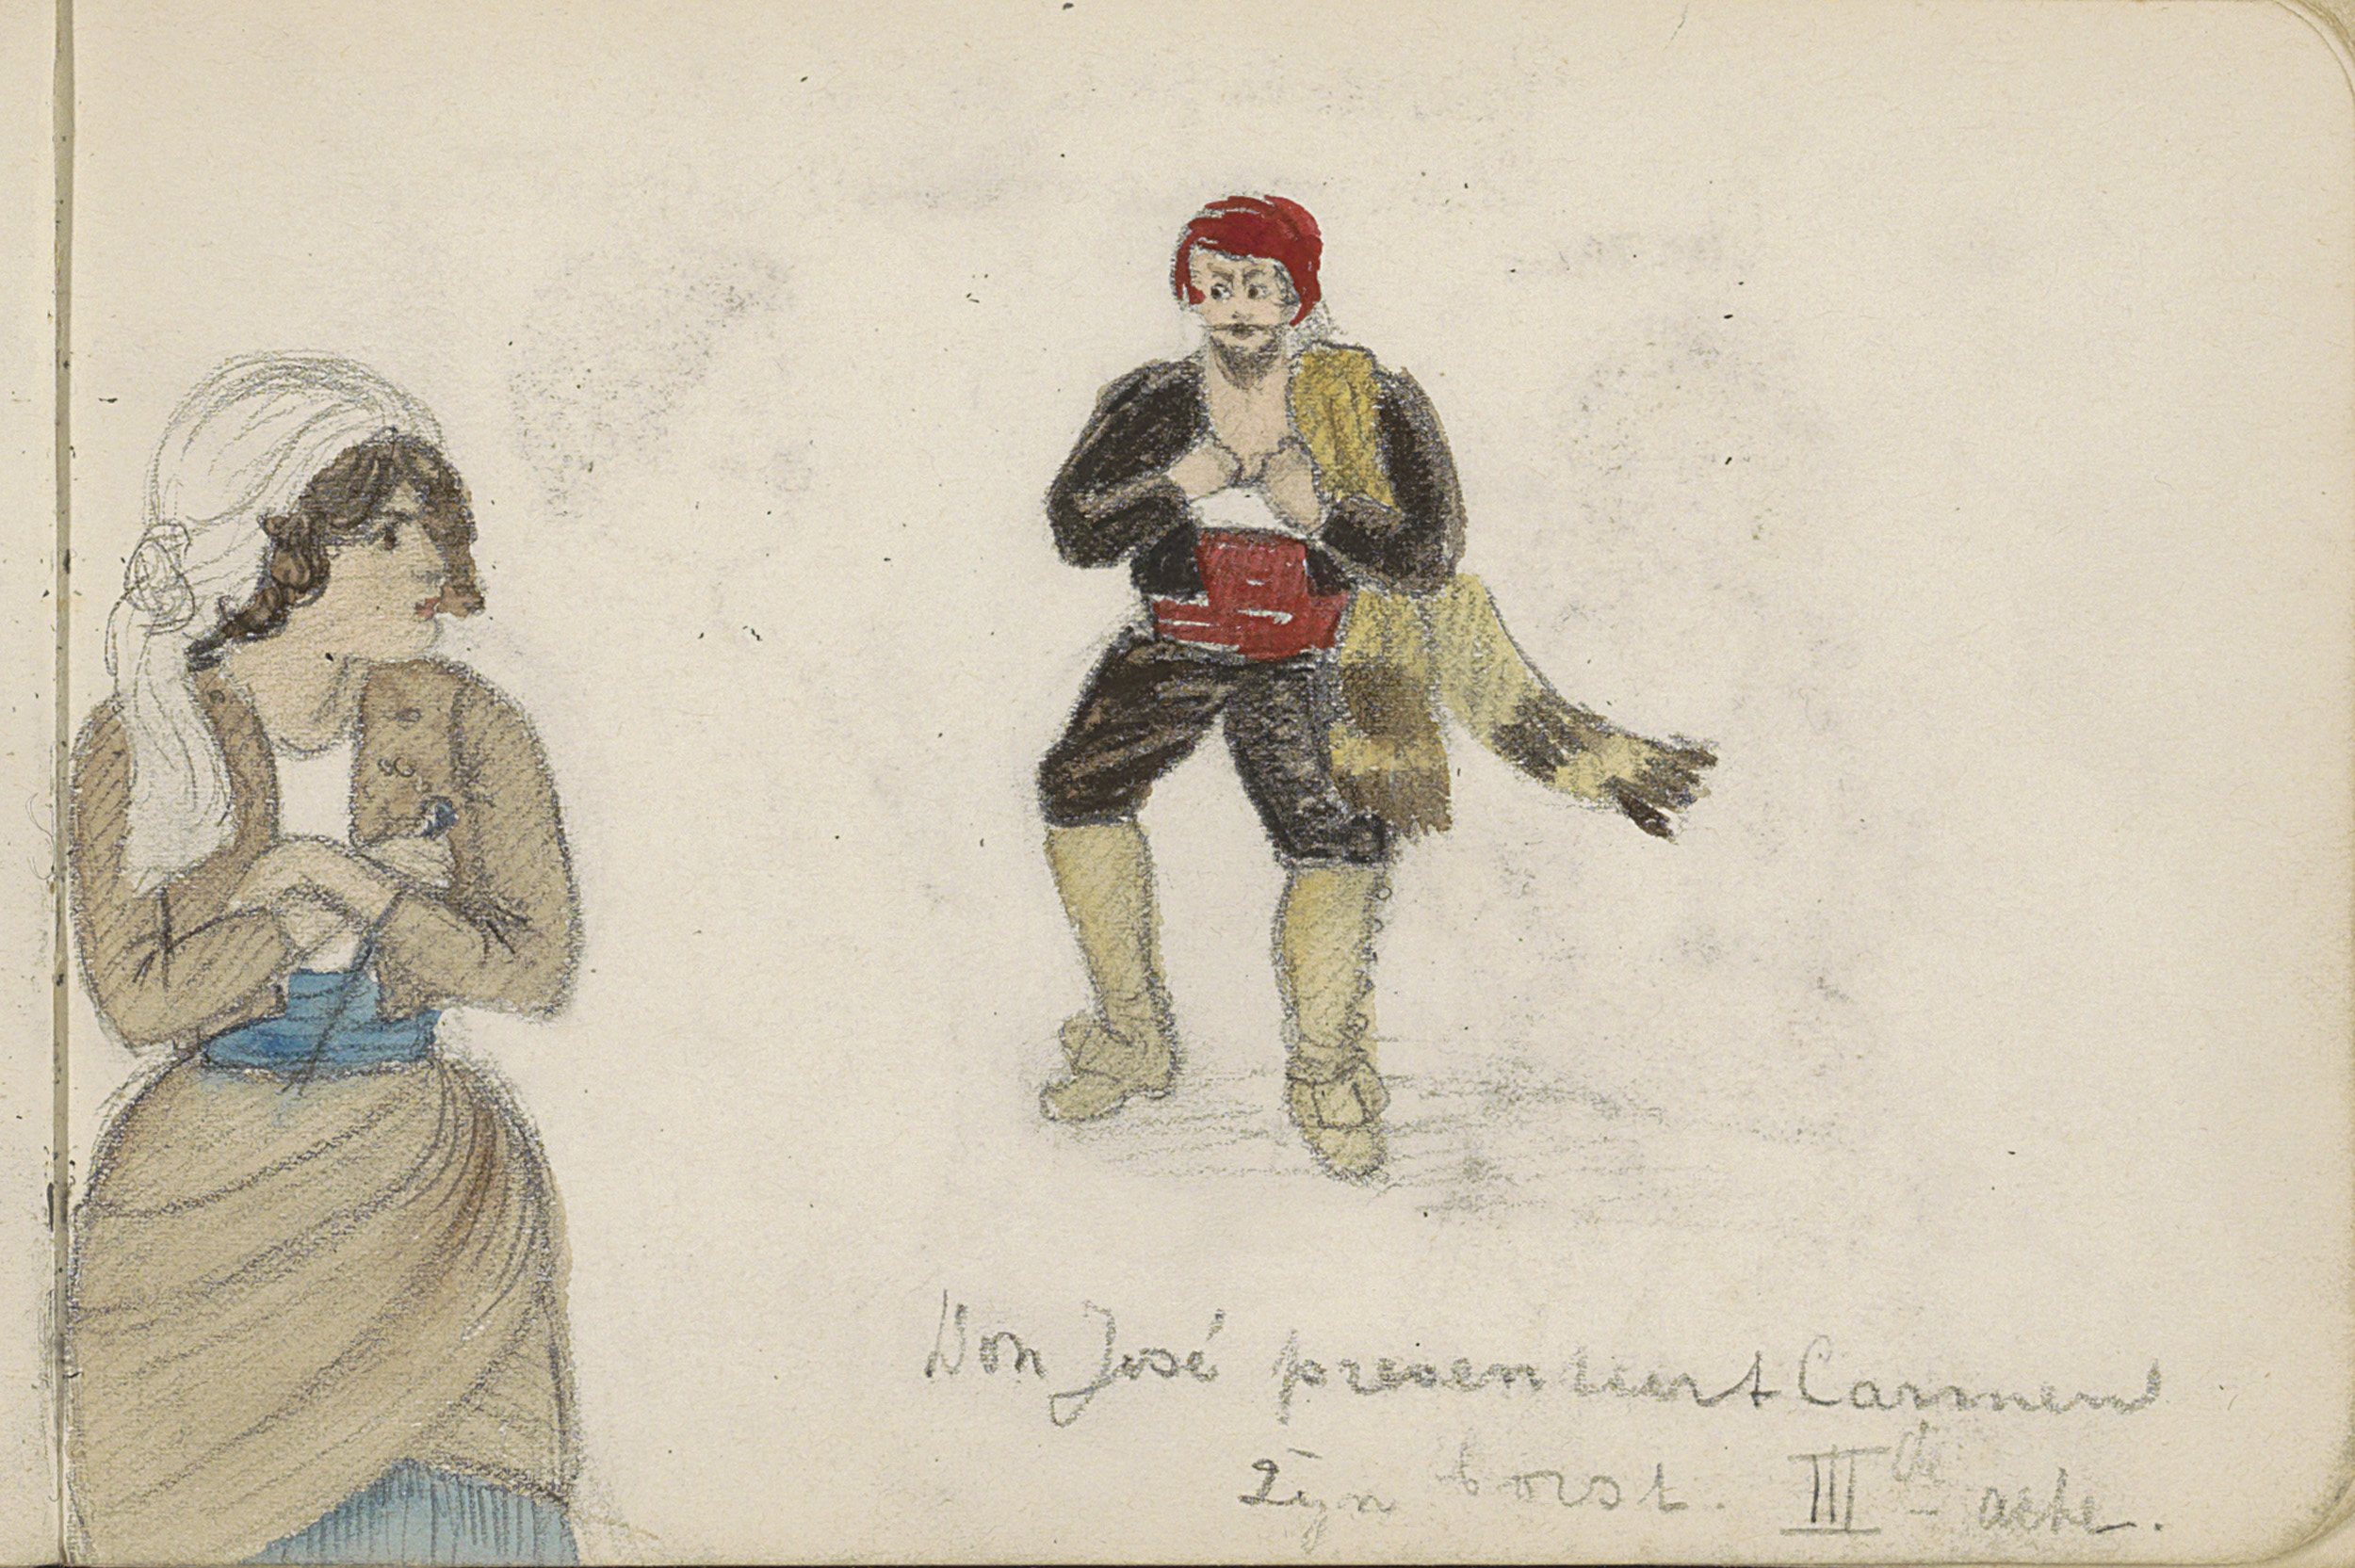 Don José presenteert Carmen
zijn borst. III de acte.